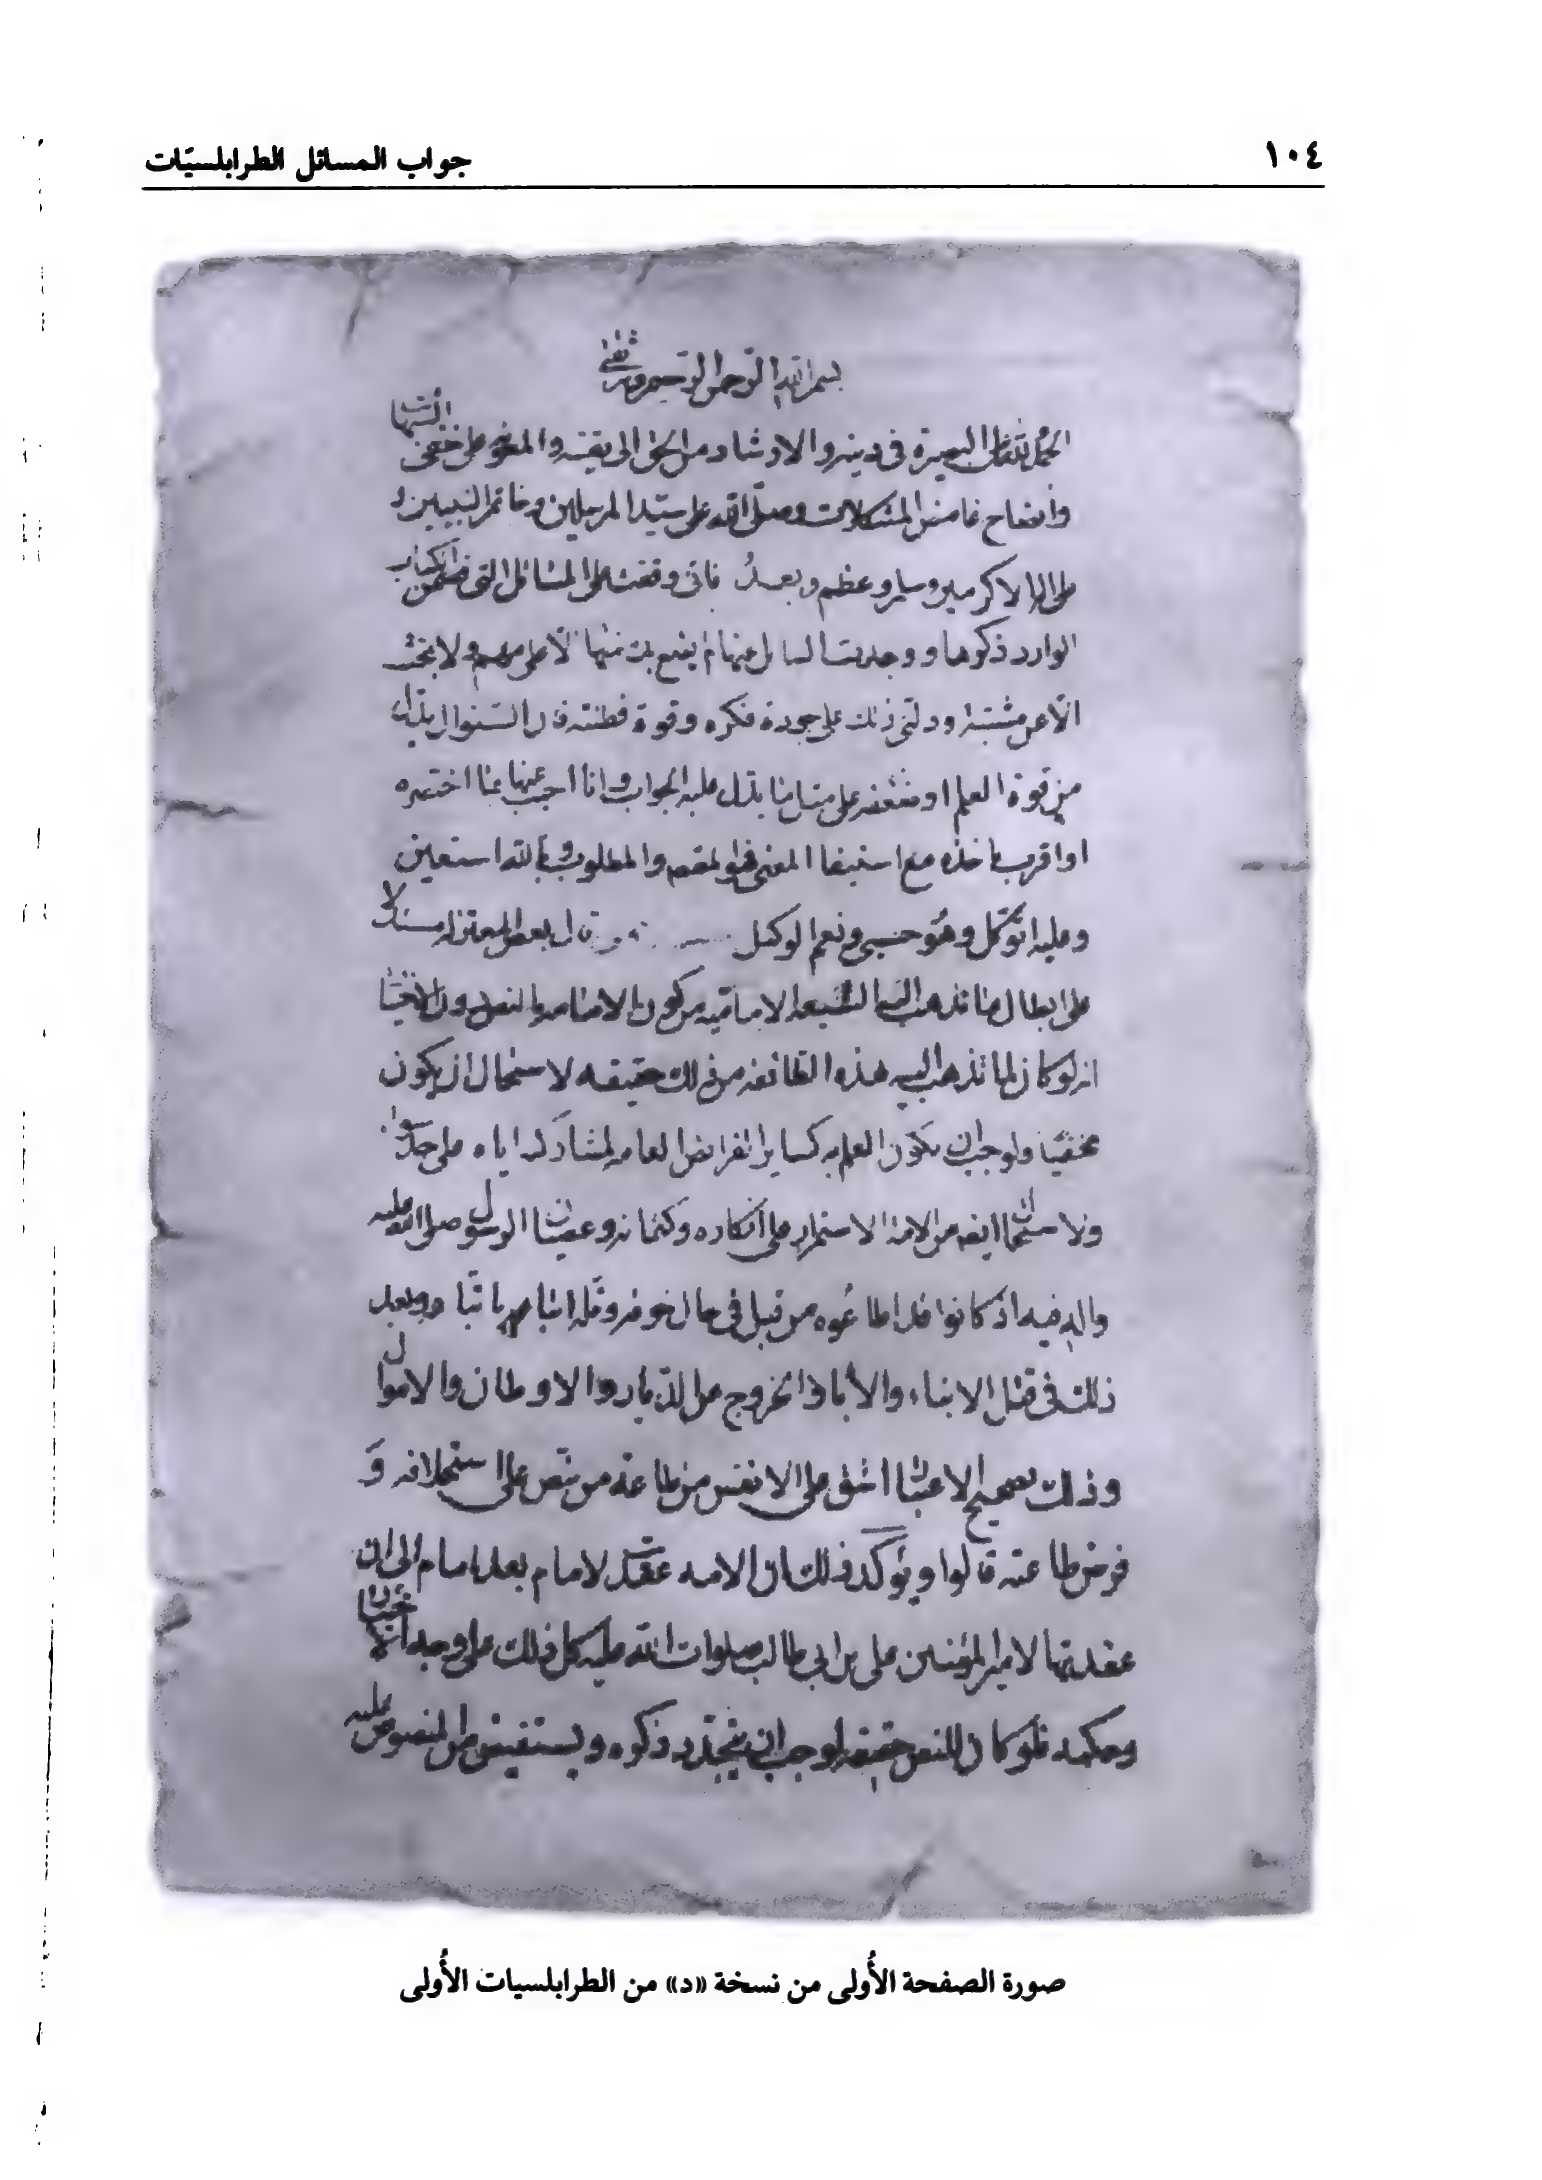 ١٠٤
جواب المسائل الطرابلسيّات
بسم الله الرحمن الرحيم
الحمد لله على البصيرة في دينه والارشاد من الحق الى يقينه والمعونه على خفي
وايضاح غامض المشكلات وصلى الله على سيد المرسلين وخاتم النبيين و
على اله الاكرمين وسلم وعظم وبعد فانى وقفت على المسائل التي تضمن الكتاب
الوارد ذكرها ووجدت السايل عنها لم يضع يده منها الا على مهم ولا بحث
الا عن مشتبه ودلني ذلك على جودة فكره وقوة فطنته فان السؤال يدل
من قوة العلم او ضعفه على مثل ما يدل عليه الجواب وانا اجيب عنها بما اختصره
او اقرب ماخذه مع استيفا المعنى فهو المقصد والمطلوب وبالله استعين
وعليه اتوكل وهو حسبي ونعم الوكيل قال بعض المعتزله مستدلا
على ابطال ما تذهب اليه الشيعه الاماميه من كون الامامه بالنص دون الاختيار
انه لو كان لما تذهب اليه هذه الطائفه من ذلك حقيقه لاستحال ان يكون
مخفيا ولوجب ان يكون العلم به كساير الفرائض العامه لمشاركته اياه على حد سواء
ولاستحال ايضا من الامة الاستمرار على انكاره وكتمانه وعصيان الرسول صلى الله عليه
واله فيه اذ كانوا قد اطاعوه من قبل في حال خوفه وقلة اتباعه وبعد
ذلك في قتل الابناء والآباء والخروج من الديار والاوطان والاموال
وذلك بصحيح الاعتبار اشق على الانفس من طاعة من نص على استخلافه و
فرض طاعته قالوا ويؤكد ذلك ان الامه عقدت لامام بعد امام الى ان
عقدتها لامير المؤمنين على بن ابي طالب صلوات الله عليه كل ذلك على وجه الاختيار
وحكمه فلو كان للنص حقيقه لوجب ان يتجدد ذكره ويستفيض من المنصوص عليه
صورة الصفحة الأُولى من نسخة «د» من الطرابلسيات الأُولى